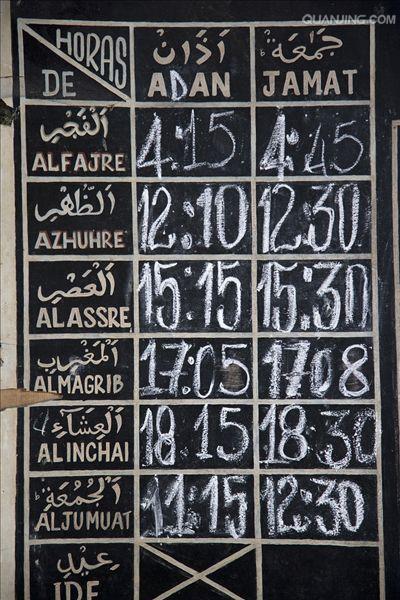 QUANJING.COM
HORAS
DE
اَذَان
ADAN
جَمعَة
JAMAT
اَلْفَجْر
ALFAJRE
4:15
4:45
اَلظُّهْر
AZHUHRE
12:10
12:30
اَلْعَصْر
ALASSRE
15:15
15:30
اَلْمَغْرِب
ALMAGRIB
17:05
1708
اَلْعِشَآء
ALINCHAI
18:15
18:30
اَلْجُمُعَة
ALJUMUAT
11:15
12:30
عِيْد
IDE